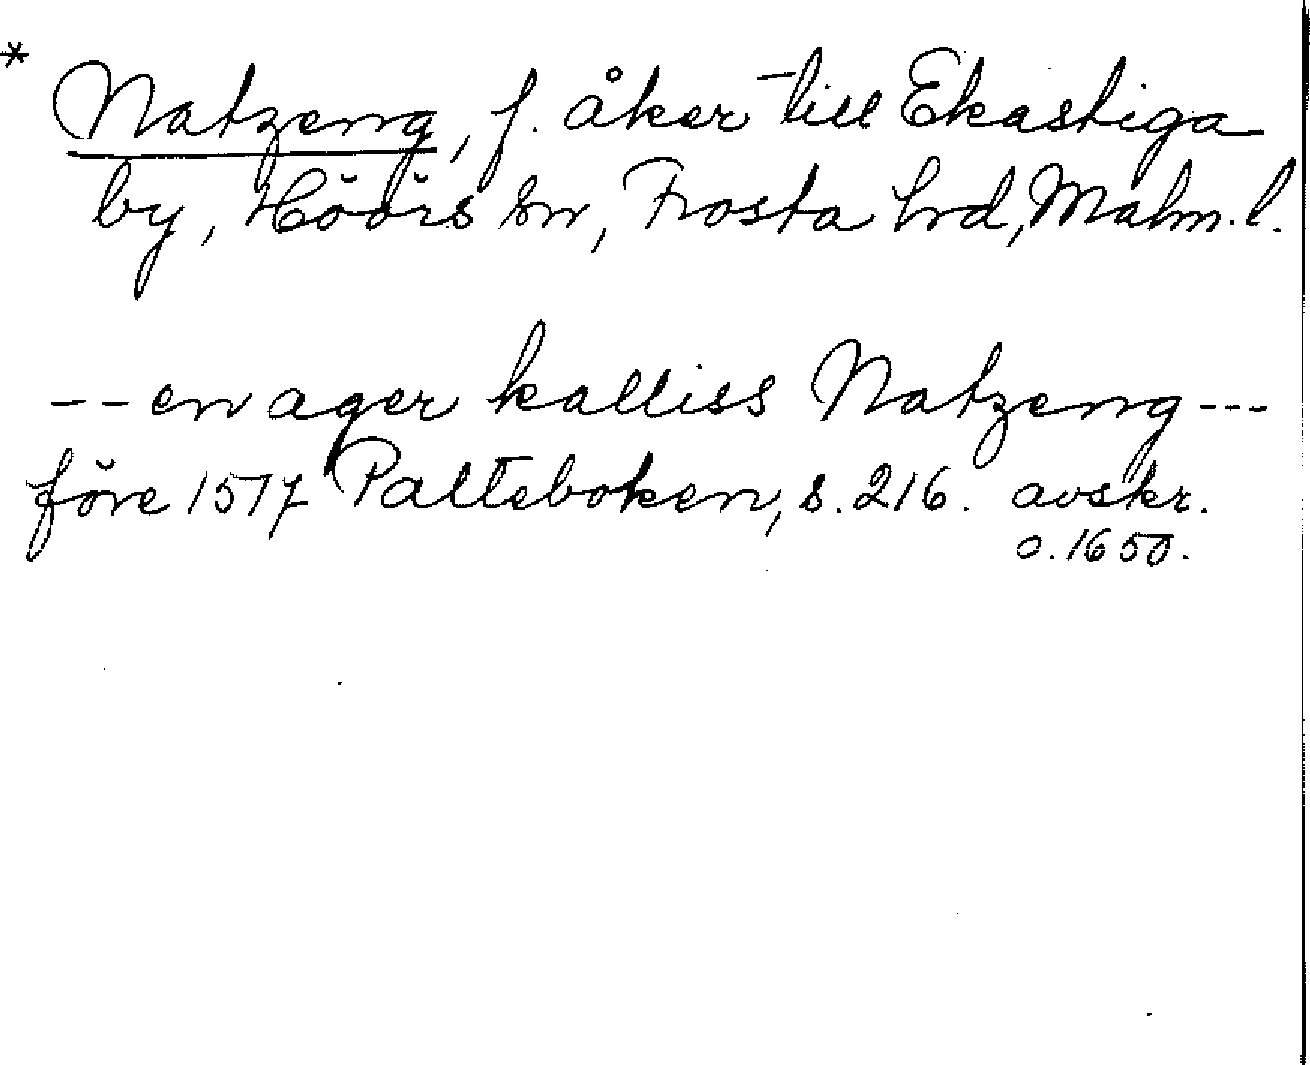 * Natzeng, f. åker till Ekastiga
by, Höörs sn, Frosta hrd, Malm. l.
-- en ager kalliss Natzeng ---
före 1517 Palteboken, s. 216. avskr.
o. 1650.